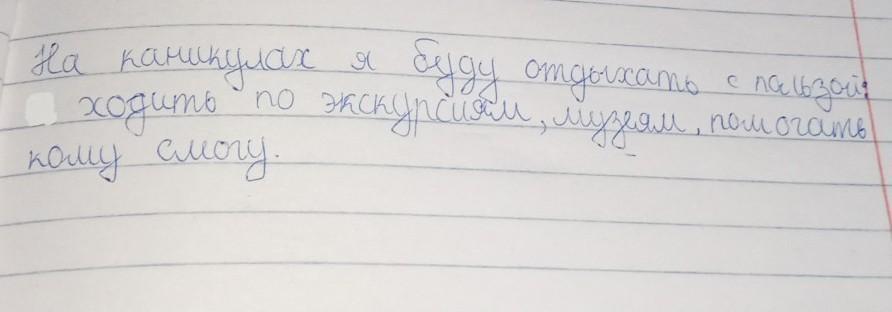 На каникулах я буду отдыхать с пользой:
ходить по экскурсиям, музеям, помогать
кому смогу.